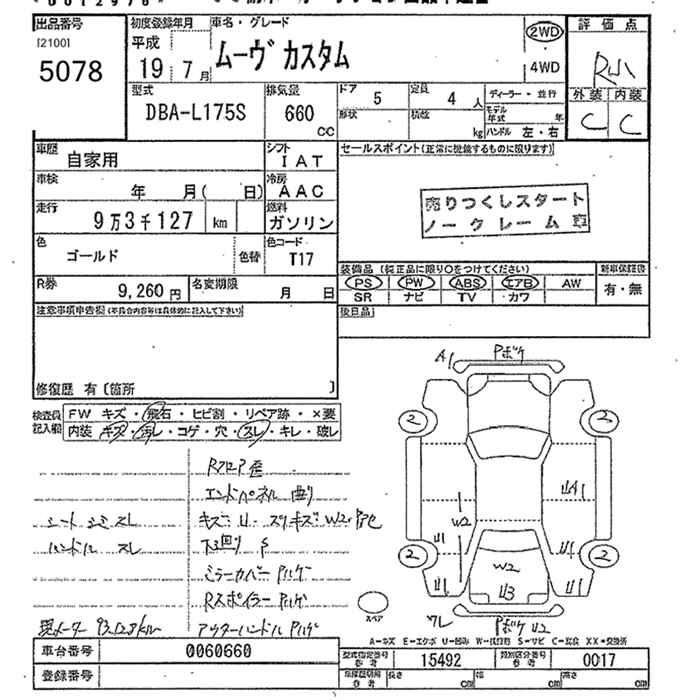 出品番号 初度登録年月 車名・グレード 評価点
[2100]
5078
平成
19年 7月
ムーヴ カスタム
2WD
4WD
外装 内装
C C
型式 排気量 ドア 定員 ディーラー・並行
DBA-L175S 660 CC 5 4人
形状 積載 kg モデル年式 年
ハンドル 左・右
車歴 自家用 シフト IAT
セールスポイント(正常に機能するものに限ります)
車検 年 月( 日) 冷房 AAC
走行 9万3千127 km 燃料 ガソリン
売りつくしスタート
ノークレーム
色 ゴールド 色替 色コード T17
装備品(純正品に限り○をつけてください) 新車保証書
PS PW ABS エアB AW 有・無
SR ナビ TV カワ
R券 9,260円 名変期限 月 日
後日品
注意事項申告欄(不具合内容等は具体的に記入して下さい)
修復歴 有〔箇所 〕
検査員記入欄
FW キズ・飛石・ヒビ割・リペア跡・×要
内装 キズ・汚レ・コゲ・穴・スレ・キレ・破レ
Rフロア 歪
エンドパネル 曲り
シート シミ スレ
ハンドル スレ
下回り S
ミラーカバー
Rスポイラー
アウターハンドル
A1 Pボケ
2 2
UA1
W2
U1 U1
2 2
U1 U1
W2
U3
スペア
ワレ Pボケ U2
A-キズ E-エクボ U-凹み W-波跡 S-サビ C-腐食 XX-交換済
車台番号 0060660
型式指定番号 参考 15492 類別区分番号 参考 0017
登録番号
車庫証明用 参考 長さ cm 幅 cm 高さ cm